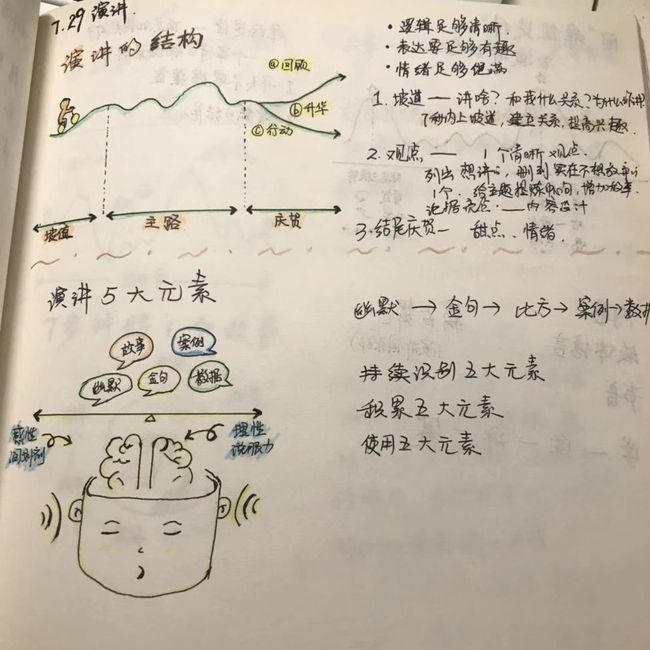 7.29 演讲.
演讲的结构
ⓐ回顾
ⓑ升华
ⓒ行动
坡道
主路
庆贺
• 逻辑足够清晰.
• 表达要足够有趣
• 情绪足够饱满
1. 坡道 —— 讲啥? 和我什么关系? 为什么
内上坡道, 建立关系, 提高兴趣.
2. 观点 —— 1个清晰观点.
列出想讲的, 删到实在不想放弃的
1个. 给主题
内容设计
3. 结尾庆贺— 甜点、情绪.
演讲5大元素
故事
案例
幽默
金句
数据
感性
理性
说服力
幽默 → 金句 → 比方 → 案例 → 数据
持续识别五大元素
积累五大元素
使用五大元素